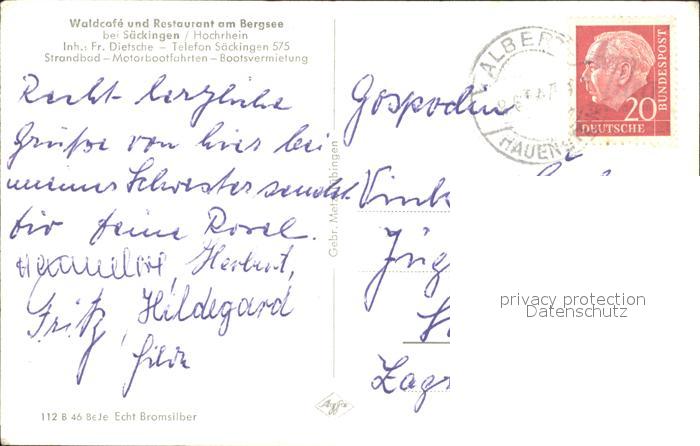 Waldcafé und Restaurant am Bergsee
bei Säckingen / Hochrhein
Inh.: Fr. Dietsche – Telefon Säckingen 575
Strandbad – Motorbootfahrten – Bootsvermietung
Recht herzliche
Grüße von hier bei
meiner Schwester sendet
dir deine Rosel.
Hannelore, Herbert,
Fritz, Hildegard
Hilde
112 B 46 BeJe Echt Bromsilber
Gebr. Metz, Tübingen
Agfa
ALBER
HAUEN
20
DEUTSCHE
BUNDESPOST
Gospodin
Vink
Jug
Zagr
privacy protection
Datenschutz